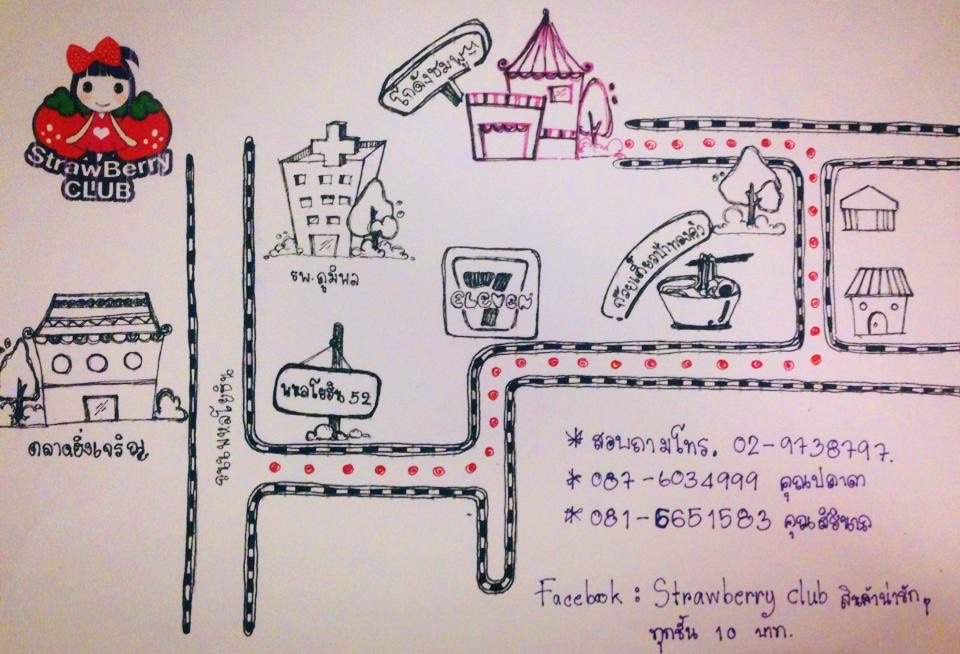 StrawBerry
CLUB
โกดังชมพู
รพ.ภูมิพล
ELEVEN
ก๋วยเตี๋ยวป้าทองคำ
พหลโยธิน 52
ถนนพหลโยธิน
ตลาดยิ่งเจริญ
* สอบถามโทร. 02-9738797.
* 087-6034999 คุณปลาดา
* 081-5651583 คุณสิรินภา
Facebook : Strawberry club สินค้าน่ารักๆ
ทุกชิ้น 10 บาท.